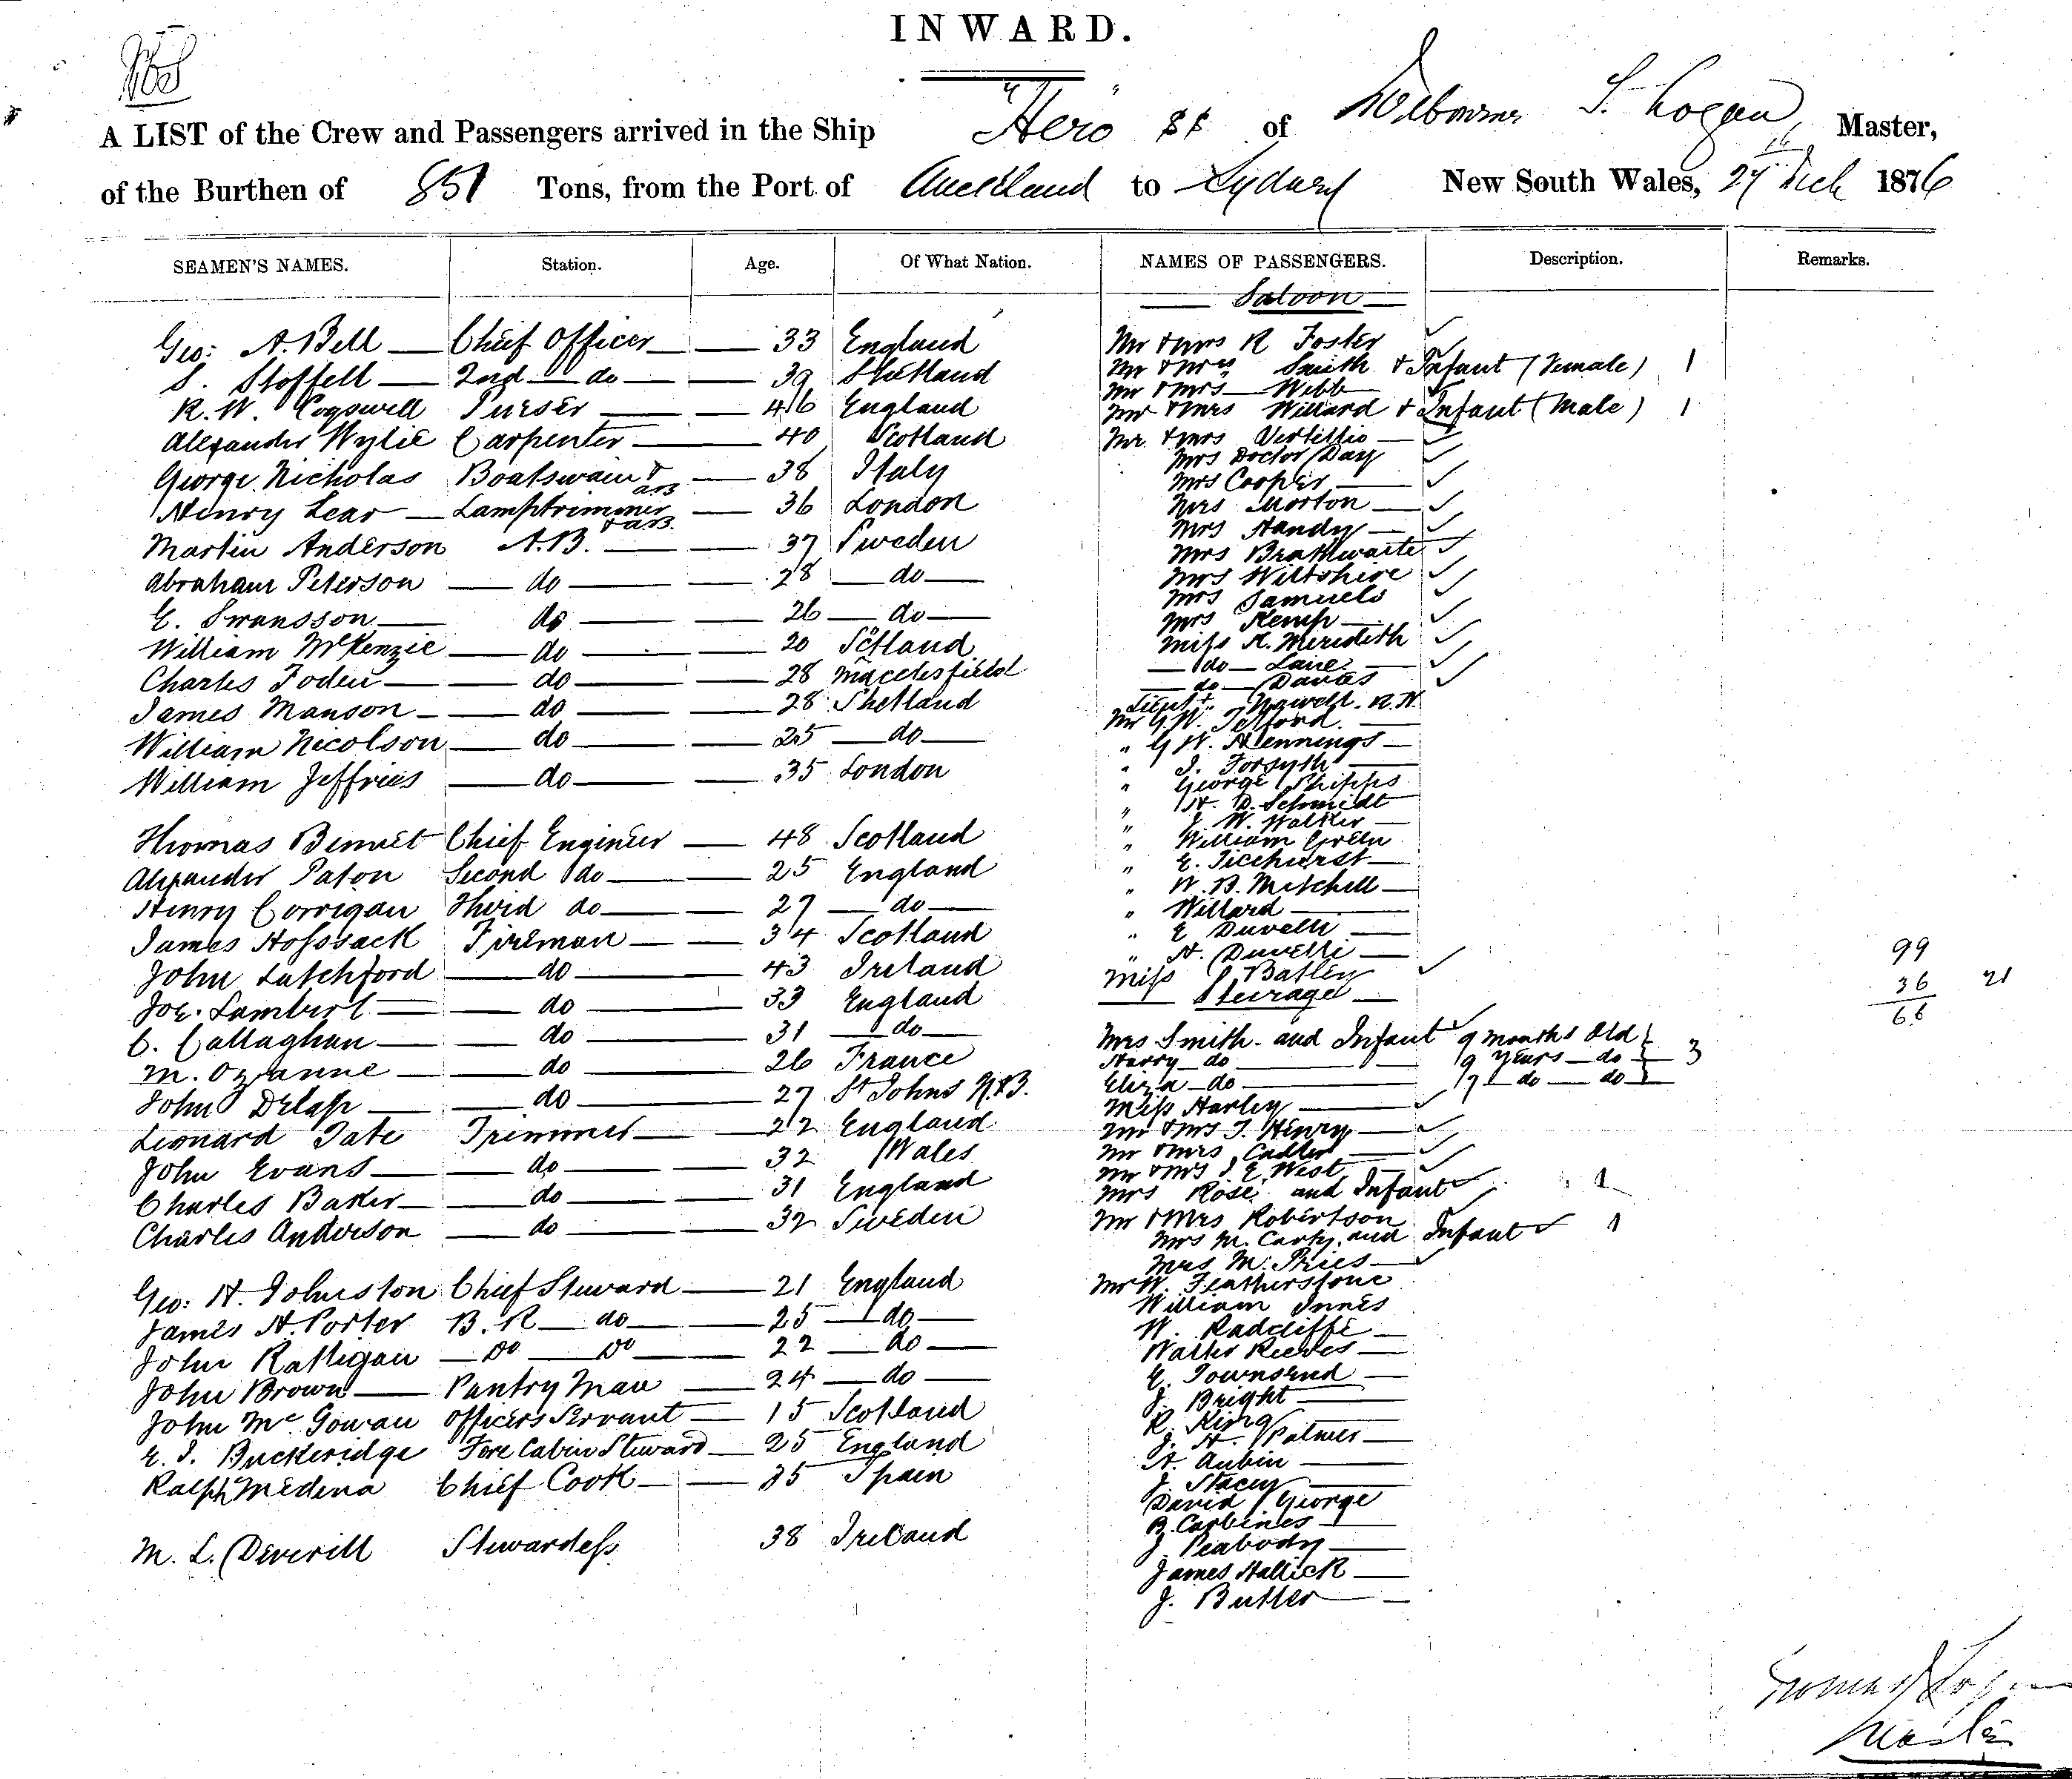 INWARD.
A LIST of the Crew and Passengers arrived in the Ship "Hero" SS of Melbourne T. Logan Master,
of the Burthen of 851 Tons, from the Port of Auckland to Sydney New South Wales, 27th Dec 1876
SEAMEN'S NAMES. Station. Age. Of What Nation.
Geo: A. Bell Chief Officer 33 England
S. Stoffell 2nd do 39 Shetland
R. W. Cogswell Purser 46 England
Alexander Wylie Carpenter 40 Scotland
George Nicholas Boatswain & AB 38 Italy
Henry Lear Lamptrimmer & AB 36 London
Martin Anderson A.B. 37 Sweden
Abraham Peterson do 28 do
E. Swansson do 26 do
William McKenzie do 20 Scotland
Charles Foden do 28 Macclesfield
James Manson do 28 Shetland
William Nicolson do 25 do
William Jeffries do 35 London
Thomas Bennet Chief Engineer 48 Scotland
Alexander Paton Second do 25 England
Henry Corrigan Third do 27 do
James Hossack Fireman 34 Scotland
John Latchford do 43 Ireland
Joe. Lambert do 33 England
C. Callaghan do 31 do
M. Ozanne do 26 France
John Delap do 27 St Johns N.B.
Leonard Tate Trimmer 22 England
John Evans do 32 Wales
Charles Baker do 31 England
Charles Anderson do 32 Sweden
Geo: H. Johnston Chief Steward 21 England
James H. Porter B. R do 25 do
John Rattigan do do 22 do
John Brown Pantry Man 24 do
John McGowan Officers Servant 15 Scotland
E. J. Buckeridge Fore Cabin Steward 25 England
Ralph Medina Chief Cook 35 Spain
M. L. Deverill Stewardess 38 Ireland
NAMES OF PASSENGERS. Description. Remarks.
Saloon
Mr & Mrs R Foster
Mr & Mrs Smith & Infant (Female) 1
Mr & Mrs Webb
Mr & Mrs Willard & Infant (Male) 1
Mr & Mrs Vertillio
Mrs Doctor Day
Mrs Cooper
Mrs Morton
Mrs Handy
Mrs Brathwaite
Mrs Wiltshire
Mrs Samuels
Mrs Kemp
Miss K. Meredith
do Lane
do Davies
Lieut R.N.
Mr G. W. Telford
" G W. Hennings
" J. Forsyth
" George Phipps
" H. D. Schmidt
" J. W. Walker
" William Green
" E. Ticehurst
" W. B. Mitchell
" Willard
" E Duvelli
" H. Duvelli
Miss Batley
Steerage
Mrs Smith and Infant 9 months Old
Harry do 9 Years do 3
Eliza do 7 do do
Miss Harley
Mr & Mrs J. Henry
Mr & Mrs Cadler
Mr & Mrs J E West
Mrs Rose and Infant 1
Mr & Mrs Robertson
Mrs M. Carty and Infant 1
Mrs M. Pries
Mr W. Featherstone
William Innes
W. Radcliffe
Walter Reeves
E. Townsend
J. Bright
R. King
J. H. Palmer
H. Aubin
J. Stacey
David George
B. Carbines
J Peabody
James Hallick
J. Butler
99
36 21
66
Thomas Logan
Master